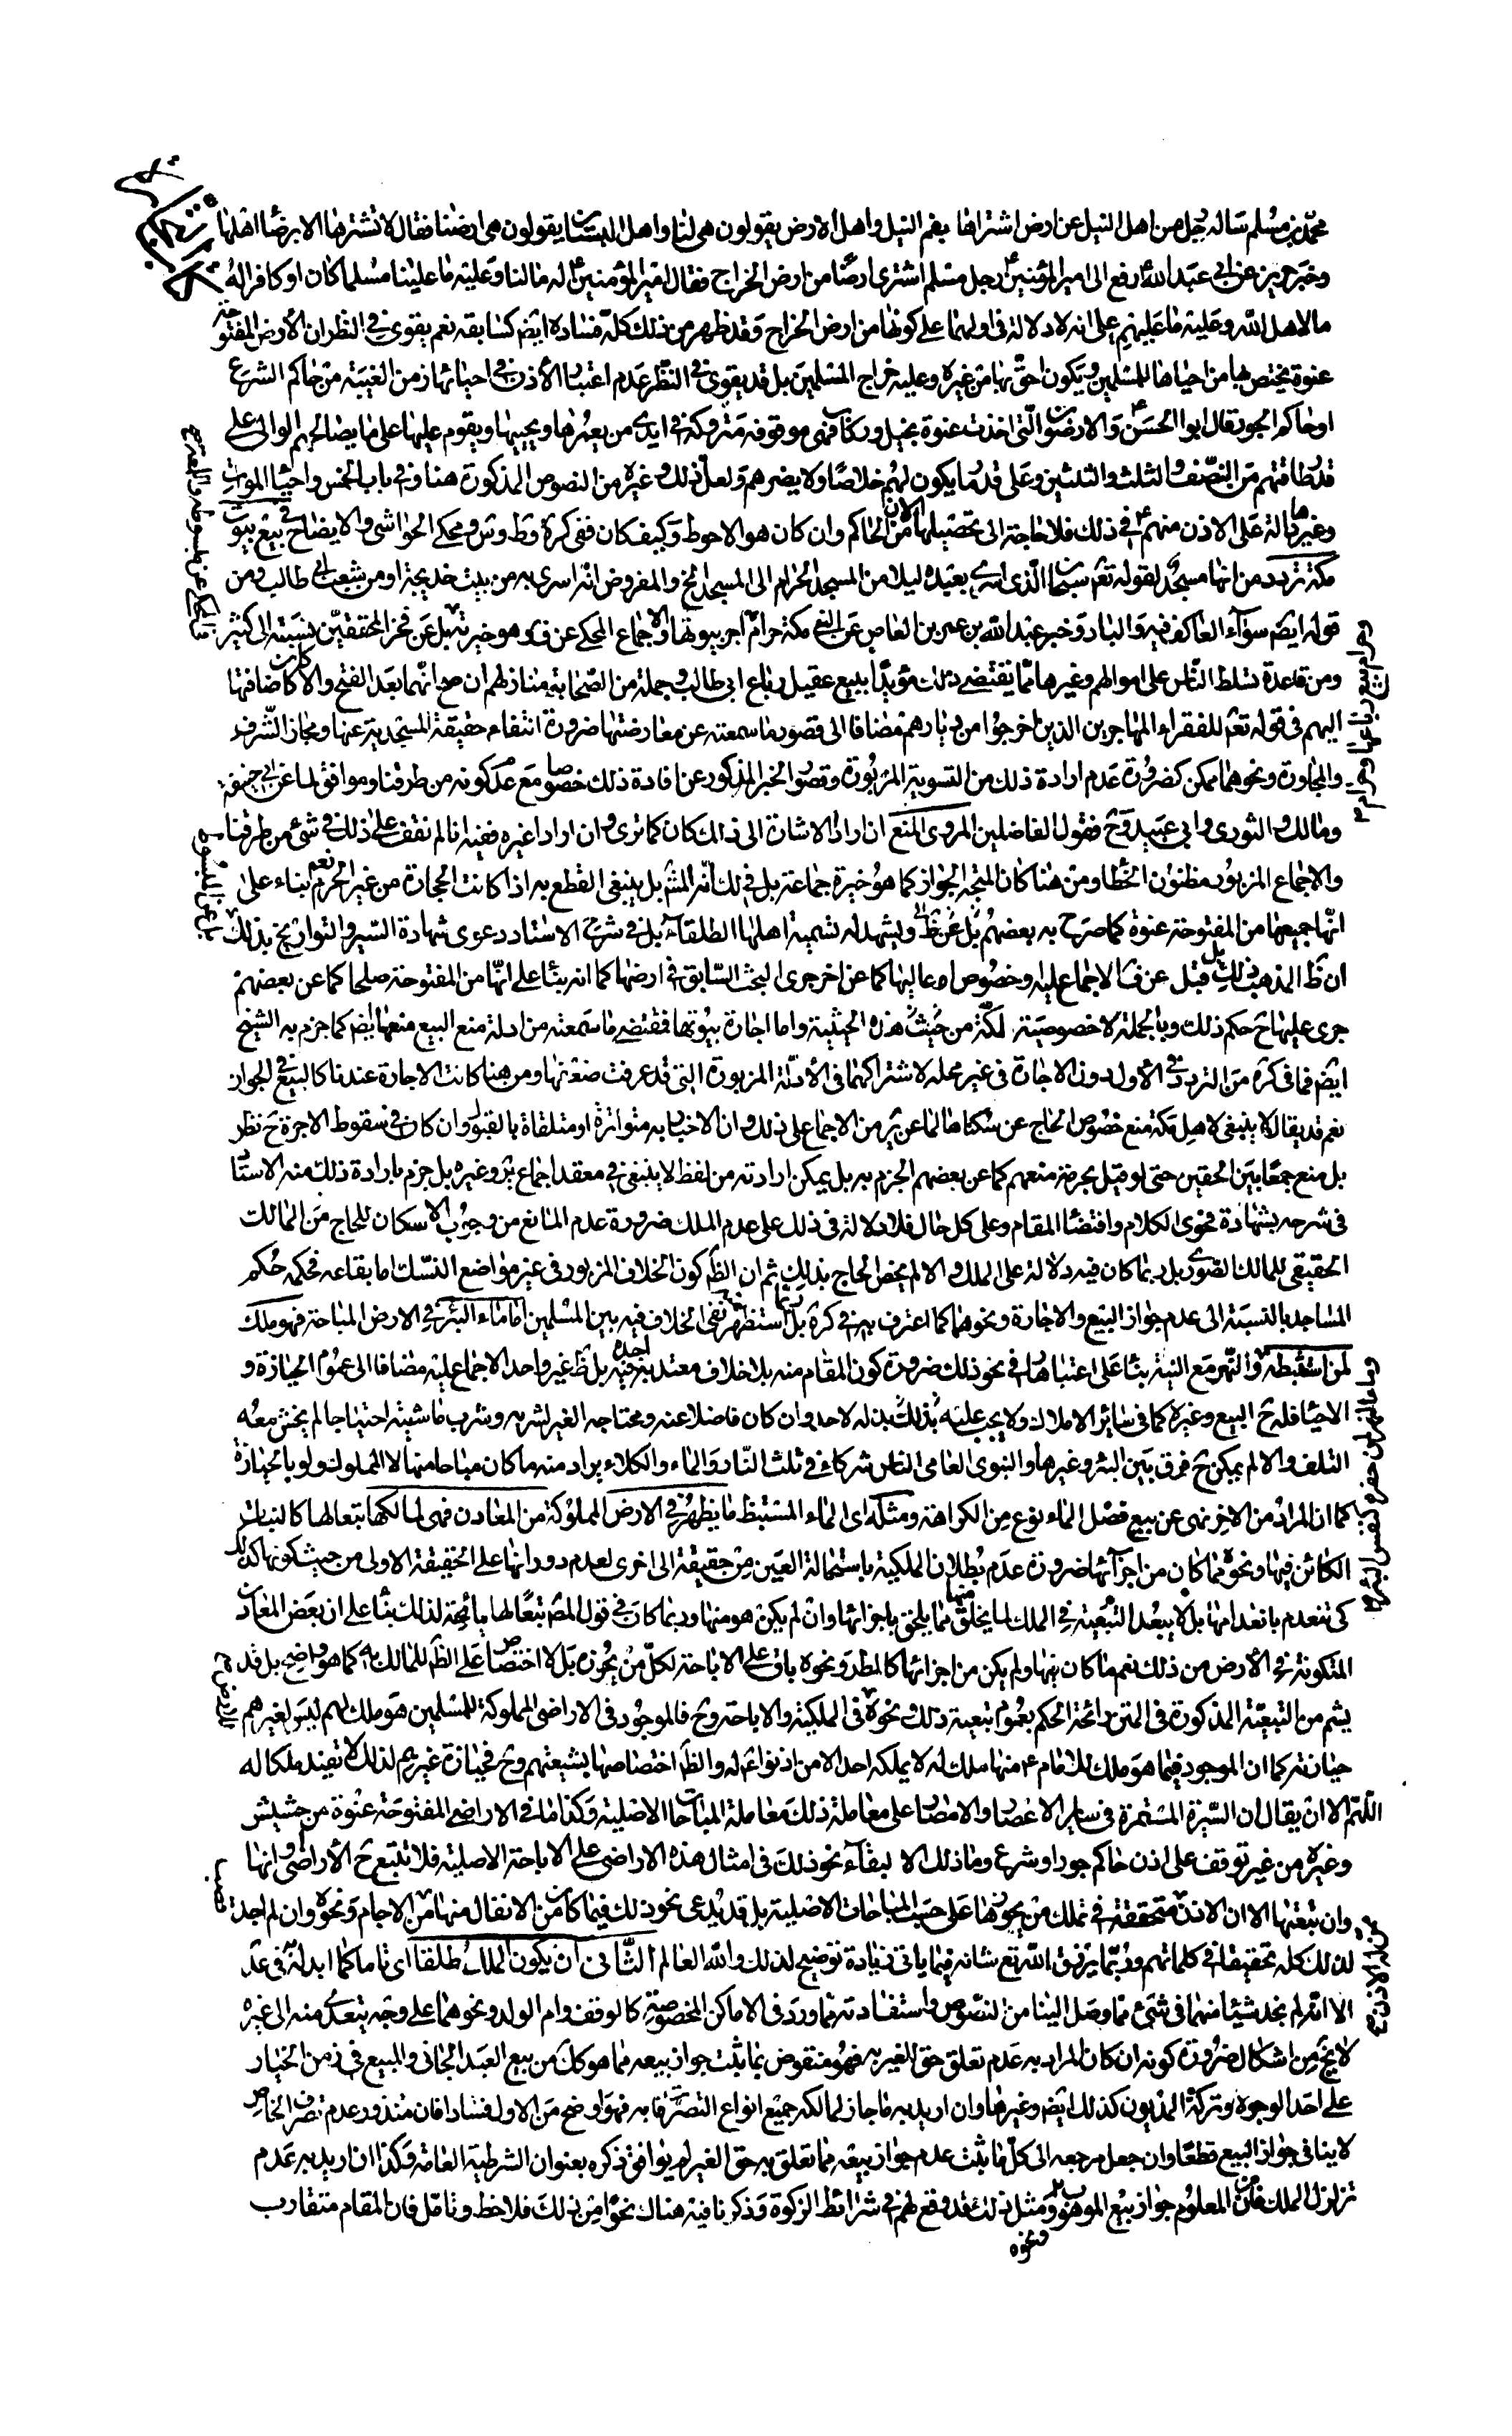 محمد بن مسلم سأله رجل من اهل النيل عن ارض اشتراها بفم النيل واهل الارض يقولون هى لنا واهل البستان يقولون هى ارضنا فقال لا تشترها الا برضا اهلها
وخبر حريز عن ابى عبد الله رفع الى امير المؤمنين رجل مسلم اشترى ارضا من ارض الخراج فقال امير المؤمنين له مالنا وعليه ما علينا مسلما كان او كافرا له
ما لاهل الله وعليه ما عليهم على انه لا دلالة فى اولهما على كونها من ارض الخراج وقد ظهر من ذلك كله فساده ايضم كسابقه نعم يقوى فى النظر ان الأرض المفتوحة
عنوة يختص بها من احياها للمسلمين ويكون احق بها من غيره وعليه خراج المسلمين بل قد يقوى فى النظر عدم اعتبار الأذن فى احيائها زمن الغيبة من حاكم الشرع
او حاكم الجور قال ابوا الحسن والارضون الّتى اخذت عنوة بخيل وركاب فهى موقوفة متروكة فى ايدى من يعمرها ويحييها ويقوم عليها على ما يصالحهم الوالى على
قدر طاقتهم من النّصف والثلث والثلثين وعلى قدر ما يكون لهم خلاصًا ولا يضرهم ولعل ذلك وغيره من النصوص المذكورة هنا وفى باب الخمس واحياء الموات
وغيرها دالة على الاذن منهم فى ذلك فلا حاجة الى تحصيلها الان من الحاكم وان كان هو الاحوط وكيف كان ففى كرة وط وش ومحكى الحواشى والايضاح فى بيع بيوت
مكة تردد من انها مسجد لقوله تعم سبحان الّذى اسرى بعبده ليلا من المسجد الحرام الى المسجد الخ والمفروض انه اسرى به من بيت خديجة او من شعب ابى طالب ومن
قوله ايضم سوآء العاكف فيه والباد وخبر عبد الله بن عمر بن العاص عن النبى مكة حرام اجر بيوتها والاجماع المحكى عن ف وهو خيرته بل عن فخر المحققين نسبته الى كثير
ومن قاعدة تسلط النّاس على اموالهم وغيرها مما يقتضى ذلك مؤيّدا ببيع عقيل رباع ابى طالب وجملة من الصّحابة منازلهم ان صح انّهما بعد الفتح والا كانت كاضافتها
اليهم فى قوله تعم للفقراء المهاجرين الذين اخرجوا من ديارهم مضافا الى قصور ما سمعته عن معارضتها ضرورة انتفاء حقيقة المسجدية عنها ومجاز الشّرف
والمجاورة ونحوهما ممكن كضرورة عدم ارادة ذلك من التسوية المزبورة وقصور الخبر المذكور عن افادة ذلك خصوصا مع عدم كونه من طرقنا وموافق لما عن ابى حنيفة
ومالك والثورى وابى عبيد وح فقول الفاضلين المروى المنع ان ارادا الاشارة الى ذلك كان كما ترى وان ارادا غيره ففيه انا لم نقف على ذلك فى شئ من طرقنا
والاجماع المزبور مظنون الخطا ومن هنا كان المتجه الجواز كما هو خيرة جماعة بل فى لك انه المشم بل ينبغى القطع به اذا كانت الحجارة من غير الحرم نعم بناء على
انّها جميعها من المفتوحة عنوة كما صرح به بعضهم بل عن ظ ويشهد له تسمية اهلها الطلقاء بل فى شرح الاستاد دعوى شهادة السّير والتواريخ بذلك
ان ظ المذهب ذلك بل قيل عن ف الاجماع عليه وخصوص اعاليها كما عن اخر جرى البحث السّابق فى ارضها كما انه بناء على انّها من المفتوحة صلحا كما عن بعضهم
جرى عليها ح حكم ذلك وبالجملة لا خصوصية لمكّة من حيث هذه الحيثية واما اجارة بيوتها فقتضى ما سمعته من ادلة منع البيع منعها ايضم كما جزم به الشيخ
ايضم فما فى كرة من التردد فى الأول دون الاجارة فى غير محله لاشتراكهما فى الأدلة المزبورة التى قد عرفت ضعفها ومن هنا كانت الاجارة عندنا كالبيع فى الجواز
نعم قد يقال لا ينبغى لاهل مكة منع خصوص الحاج عن سكناها لما عن ير من الاجماع على ذلك وان الاخبار به متواترة او متلقاة بالقبول وان كان فى سقوط الاجرة ح نظر
بل منع جمعًا بين الحقين حتى لو قيل بحرمة منعهم كما عن بعضهم الجزم به بل يمكن ارادته من لفظ لا ينبغى فى معقد اجماع ير وغيره بل جزم بارادة ذلك منه الاستاد
فى شرحه بشهادة فحوى الكلام واقتضاء المقام وعلى كل حال فلا دلالة فى ذلك على عدم الملك ضرورة عدم المانع من وجوب الاسكان للحاج من المالك
الحقيقى للمالك الصورى بل ربما كان فيه دلالة على الملك والا لم يخص الحاج بذلك ثم ان الظم كون الخلاف المزبور فى غير مواضع النسّك اما بقاعه فحكمه حكم
المساجد بالنسبة الى عدم جواز البيع والاجارة ونحوهما كما اعترف به فى كرة بل ربما استنظهر نفى الخلاف فيه بين المسلمين اما ماء البئر فى الارض المباحة فهو ملك
لمن استنبطه والنّهر مع النية بناء على اعتبارها فى نحو ذلك ضرورة كون المقام منه بلا خلاف معتد به اجده فيه بل ظ غير واحد الاجماع عليه مضافا الى عموم الحيازة و
الاحياء فله ح البيع وغيره كما فى سائر الاملاك ولا يجب عليه بذلك بذله لاحد وان كان فاضلا عنه ومحتاجه الغير لشربه وشرب ماشيته احتياجا لم يخش معه
التلف والا لم يمكن ح فرق بين البئر وغيرها والنبوى العامى الناس شركاء فى ثلث النّار والماء والكلاء يراد منه ما كان مباحا منها لا المملوك ولو بالحيازة
كما ان المراد من الاخر نهى عن بيع فضل الماء نوع من الكراهة ومثله اى الماء المستنبط ما يظهر فى الارض المملوكة من المعادن فهى لمالكها بتعا لها كالنبات
الكائن فيها ونحوه مما كان من اجزآئها ضرورة عدم بطلان الملكية باستحالة العين من حقيقة الى اخرى لعدم دورانها على الحقيقة الاولى من حيث كونها كذلك
كى تنعدم بانعدامها بل لا يبعد التبعية فى الملك لما يخلق منها مما يلحق باجزائها وان لم يكن هو منها وربما كان فى قول المصم تبعًا لها رائحة لذلك بناء على ان بعض المعادن
المتكونة فى الأرض من ذلك نعم ما كان فيها ولم يكن من اجزائها كالمطر ونحوه باق على الاباحة لكلّ من يحوزه بلا اختصاص على الظم للمالك به كما هو واضح بل قد
يشم من التبعيّة المذكورة فى المتن رائحة الحكم بعموم تبعية ذلك ونحوه فى الملكية والاباحة وح فالموجود فى الاراضى المملوكة للمسلمين هو ملك لهم ليس لغيرهم
حيازته كما ان الموجود فيما هو ملك للامام منها ملك له لا يملكه احد الا من اذنوا له والظم اختصاصها بشيعتهم وح فحيازة غيرهم لذلك لا تفيد ملكا له
اللّهم الا ان يقال ان السّيرة المستمرة فى ساير الاعصار والامصار على معاملة ذلك معاملة المباحات الاصلية وكذا ما فى الاراضى المفتوحة عنوة من حشيش
وغيره من غير توقف على اذن حاكم جور او شرع وما ذلك الا لبقآء نحو ذلك فى امثال هذه الاراضى على الاباحة الاصلية فلا تتبع ح الأراضى وانها
وان تبعتها الا ان الاذن متحققة فى تملك من يحوزها على حسب المباحات الاصلية بل قد يدعى نحو ذلك فيما كان من الانفال منها من الاجام ونحوه وان لم اجد
لذلك كله تحقيقا فى كلماتهم وربّما يرزق الله تع شانه فيما ياتى زيادة توضيح لذلك والله العالم الثّانى ان يكون الملك طلقا اى تاما كما ابدله فى عد
الا انّه لم نجد شيئا منهما فى شئ مما وصل الينا من النصوص واستفادته مما ورد فى الاماكن المخصوصة كالوقف وام الولد ونحوهما على وجه يتعدى منه الى غيره
لا يخ من اشكال ضرورة كونه ان كان المراد به عدم تعلق حق الغير به فهو منقوض بما يثبت جواز بيعه مما هو كك من بيع العبد الجانى والمبيع فى زمن الخيار
على احد الوجوه وتركة المديون كذلك ايضم وغيرها وان اريد به ما جاز لمالكه جميع انواع التصرّفات به فهو اوضح من الاول فسادا فان منذور عدم تصرف الخاص
لا ينافى جواز البيع قطعًا وان جعل مرجعه الى كلّ ما يثبت عدم جواز بيعه مما تعلق به حق الغير لم يوافق ذكره بعنوان الشرطية العامة وكذا ان اريد به عدم
تزلزل الملك فان من المعلوم جواز بيع الموهوب ومثل ذلك قد وقع لهم فى شرائط الزكوة وذكرنا فيه هناك نحوًا من ذلك فلاحظ وتامّل فان المقام متقارب
ونحوه